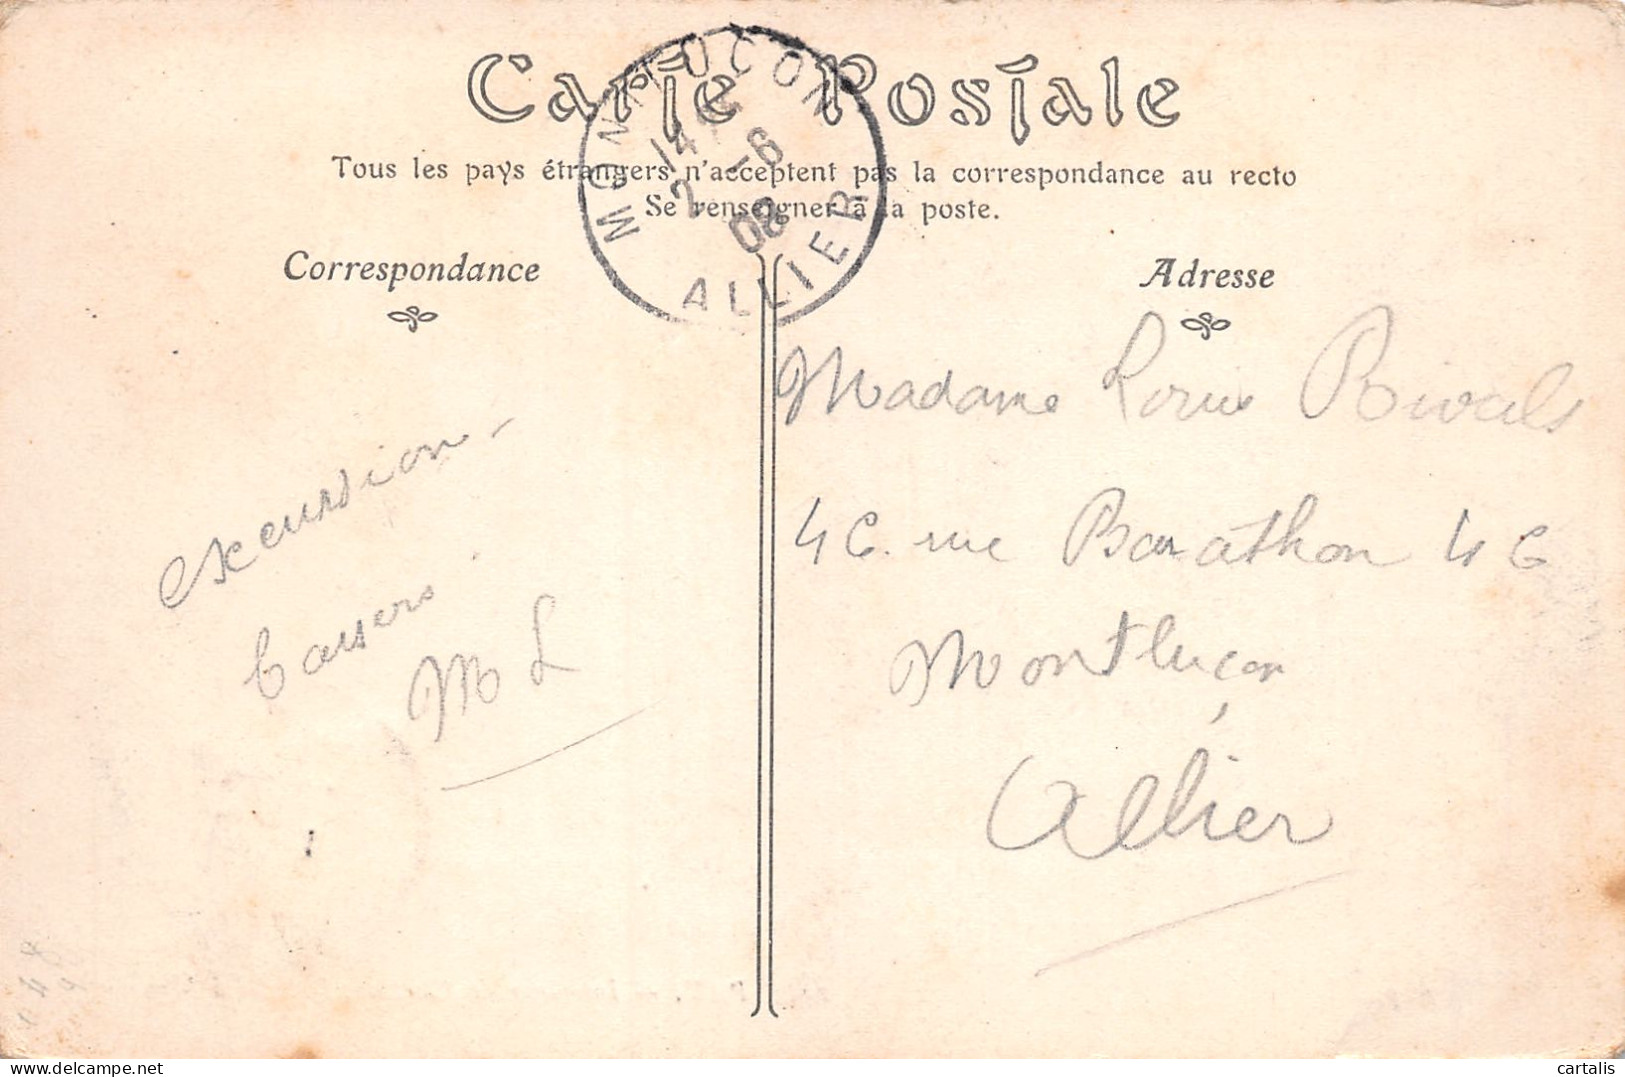 Carte Postale
Tous les pays étrangers n'acceptent pas la correspondance au recto
Se renseigner à la poste.
MONTLUCON
14
2 -6
08
ALLIER
Correspondance
Adresse
excursion -
baisers
M L
Madame Louis Rivals
46. rue Barathon 46
Montluçon
Allier
delcampe.net
cartalis